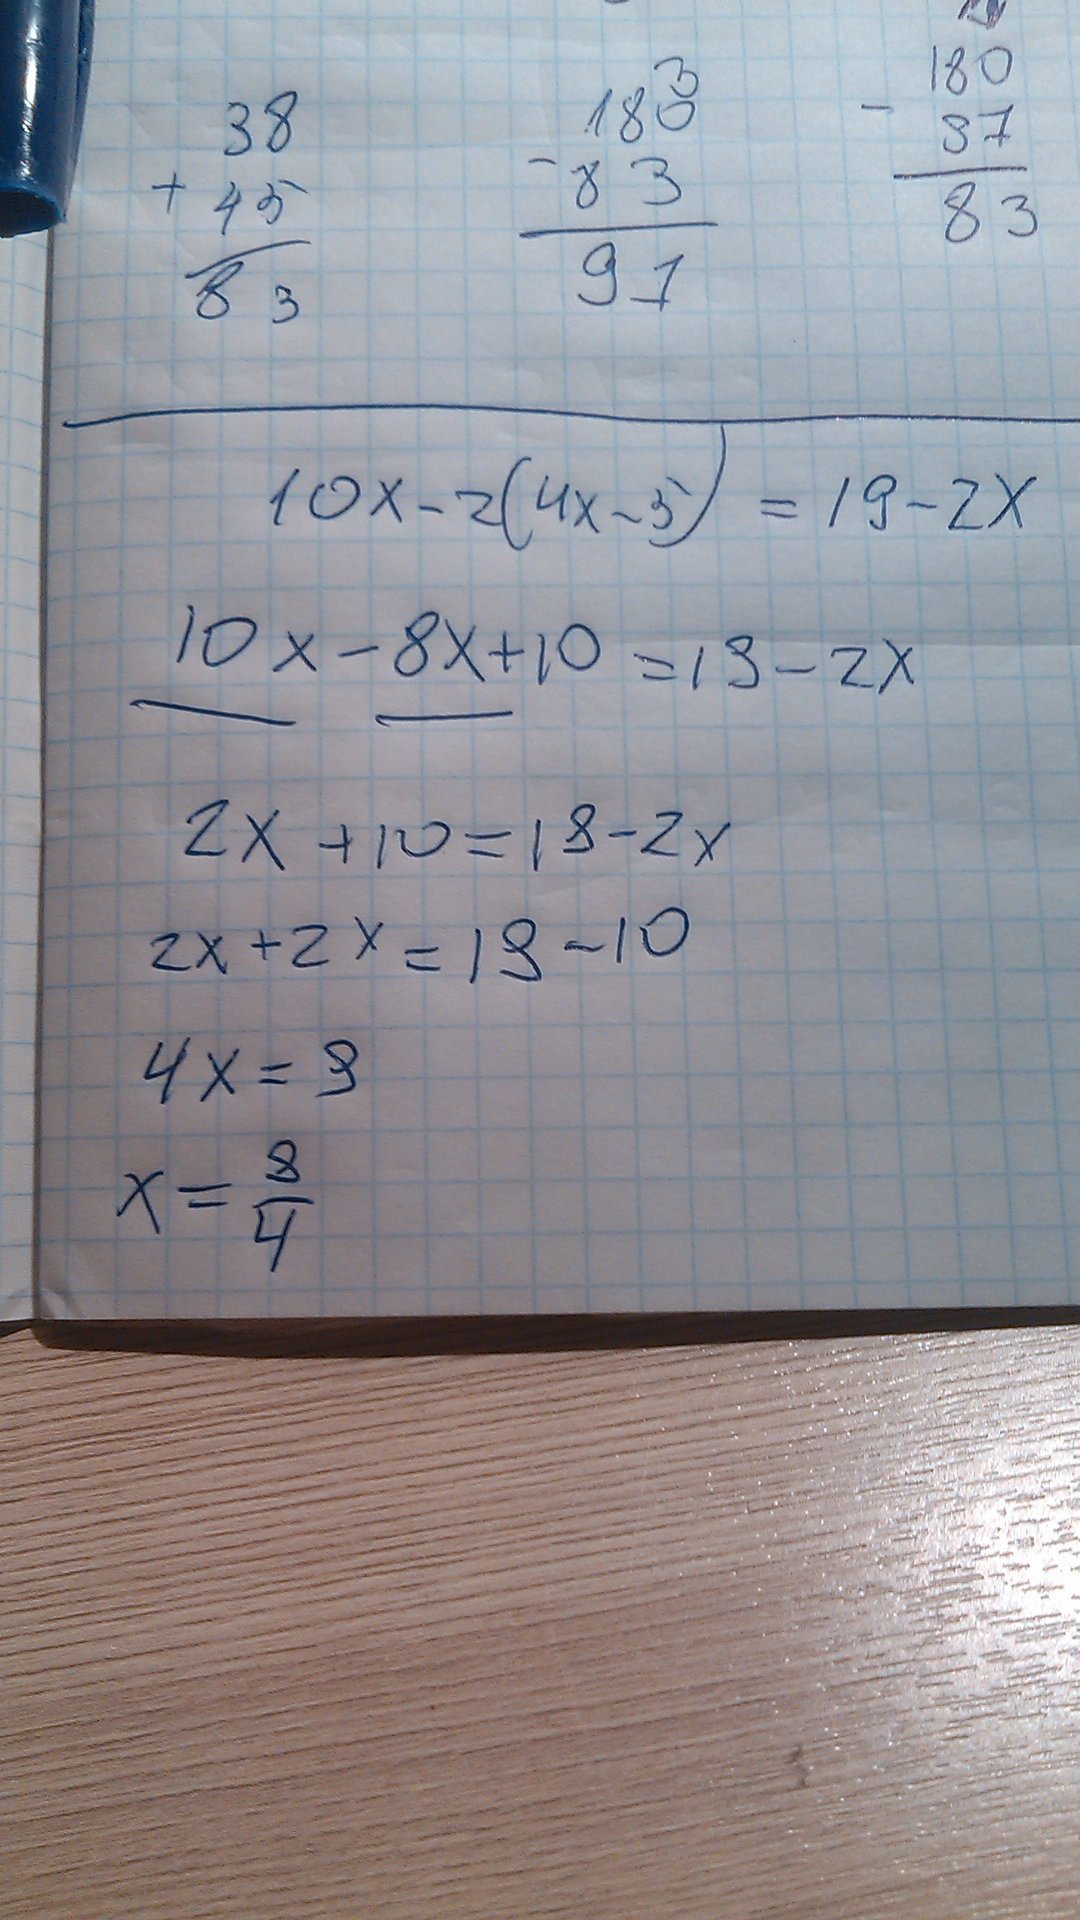 38
+ 45
83
3
180
- 83
97
180
- 97
83
10x-2(4x-5) = 19-2x
10x-8x+10=19-2x
2x+10=19-2x
2x+2x=19-10
4x=9
x=9/4